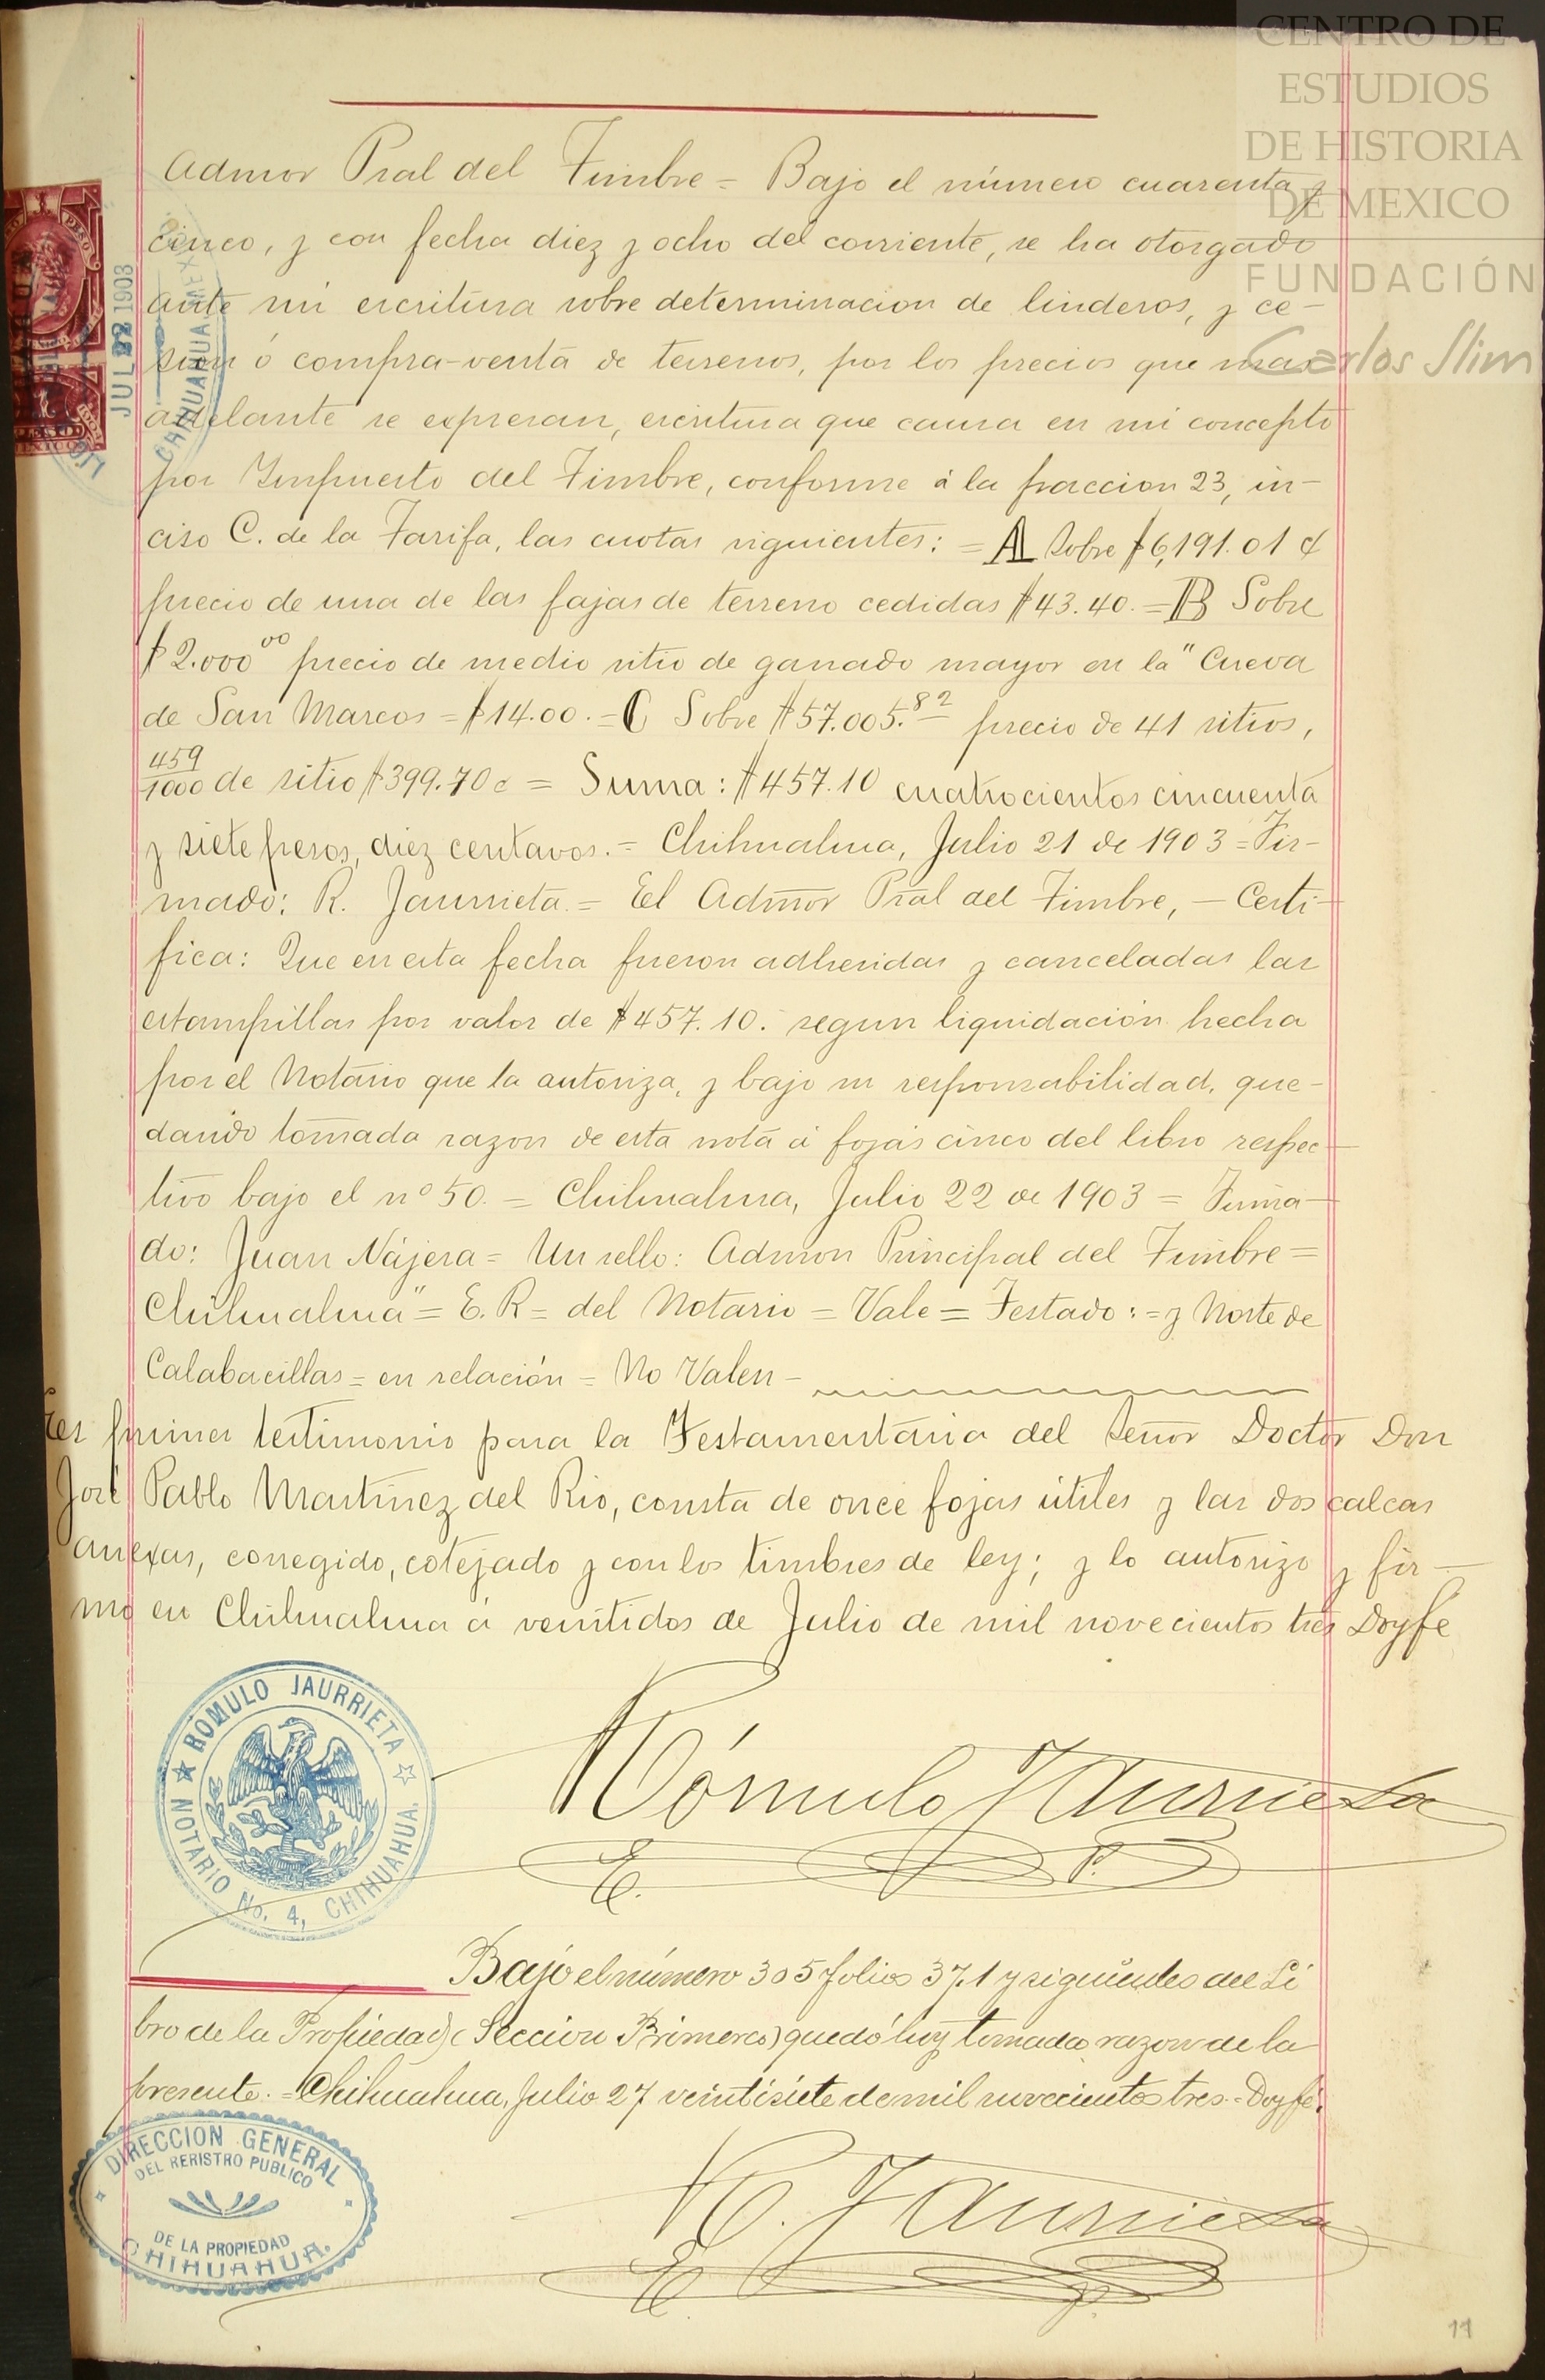 CENTRO DE
ESTUDIOS
DE HISTORIA
DE MEXICO
FUNDACIÓN
Carlos Slim
Admor Pral del Timbre = Bajo el número cuarenta y
cinco, y con fecha diez y ocho del corriente, se ha otorgado
ante mi escritura sobre determinacion de linderos, y ce-
sion ó compra-venta de terrenos, por los precios que mas
adelante se expresan, escritura que causa en mi concepto
por Impuesto del Timbre, conforme á la fraccion 23, in-
ciso C. de la Tarifa, las cuotas siguientes: = A Sobre $6,191.01 ¢
precio de una de las fajas de terreno cedidas $43.40. = B Sobre
$2.000 00 precio de medio sitio de ganado mayor en la "Cueva
de San Marcos = $14.00. = C Sobre $57.005.82 precio de 41 sitios,
459/1000 de sitio $399.70 c = Suma: $457.10 cuatrocientos cincuenta
y siete pesos, diez centavos. = Chihuahua, Julio 21 de 1903 = Fir-
mado: R. Jaurrieta = El Admor Pral del Timbre, - Certi-
fica: Que en esta fecha fueron adheridas y canceladas las
estampillas por valor de $457.10. segun liquidación hecha
por el Notario que la autoriza, y bajo su responsabilidad, que-
dando tomada razon de esta nota á fojas cinco del libro respec-
tivo bajo el nº 50. = Chihuahua, Julio 22 de 1903 = Firma-
do: Juan Nájera = Un sello: Admon Principal del Timbre =
Chihuahua" = E. R = del Notario = Vale = Testado: = y Norte de
Calabacillas = en relación = No Valen -
Es primer testimonio para la Testamentaria del Señor Doctor Don
José Pablo Martinez del Rio, consta de once fojas útiles y las dos calcas
anexas, corregido, cotejado y con los timbres de ley; y lo autorizo y fir-
mo en Chihuahua á veintidos de Julio de mil novecientos tres Doy fe
ROMULO JAURRIETA
NOTARIO No. 4, CHIHUAHUA.
Rómulo Jaurrieta
E. P.
Bajo el número 305 folios 371 y siguientes del Li
bro de la Propiedad (Seccion Primera) quedó hoy tomada razon de la
presente. = Chihuahua, Julio 27 veintisiete de mil novecientos tres. = Doy fé.
DIRECCION GENERAL
DEL RERISTRO PUBLICO
DE LA PROPIEDAD
CHIHUAHUA.
R. Jaurrieta
E. P.
JUL 22 1903
CHIHUAHUA
11